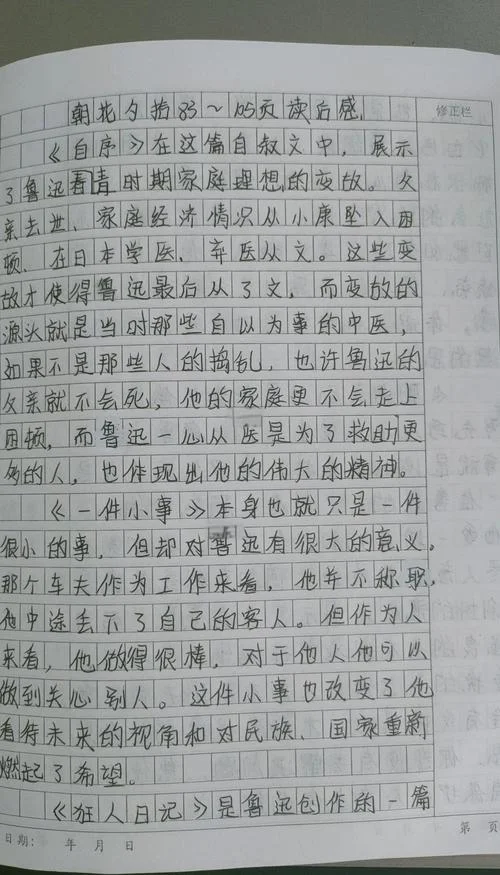 修正栏
朝花夕拾83～105页读后感
《自序》在这篇自叙文中，展示
了鲁迅青时期家庭理想的变故。父
亲去世、家庭经济情识从小康坠入困
顿、在日本学医、弃医从文。这些变
故才使得鲁迅最后从了文，而变放的
源头就是当时那些自以为事的中医，
如果不是那些人的捣乱，也许鲁迅的
父亲就不会死，他的家庭更不会走上
困顿，而鲁迅一心从医是为了救助更
多的人，也体现出他的伟大的精神。
《一件小事》本身也就只是一件
很小的事，但却对鲁迅有很大的意义。
那个车夫作为工作来看，他并不称职，
他中途丢下了自己的客人。但作为人
来看，他做得很棒，对于他人他可以
做到关心别人。这件小事也改变了他
看待未来的视角和对民族、国家重新
燃起了希望。
《狂人日记》是鲁迅创作的一篇
日期： 年 月 日 第 页